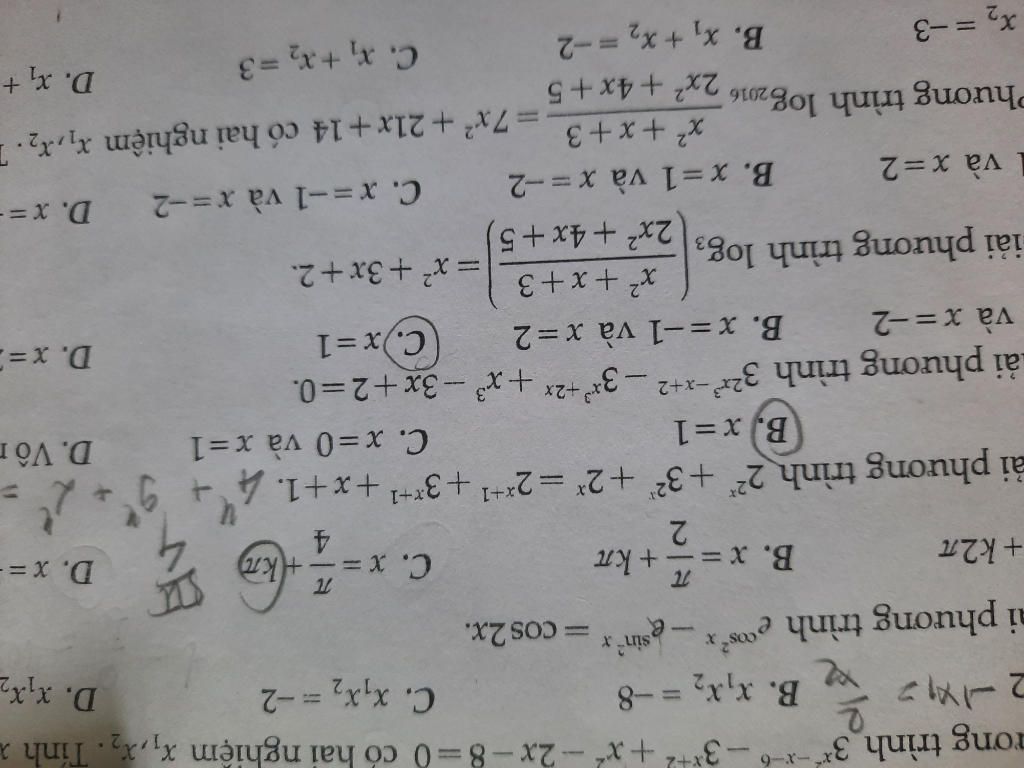 ương trình 3^{x²−x−6} − 3^{x+2} + x² − 2x − 8 = 0 có hai nghiệm x₁, x₂. Tính x
2 B. x₁x₂ = −8 C. x₁x₂ = −2 D. x₁x₂
i phương trình e^{cos²x} − e^{sin²x} = cos2x.
+ k2π B. x = π/2 + kπ C. x = π/4 + kπ D. x =
ải phương trình 2^{2^x} + 3^{2^x} + 2^x = 2^{x+1} + 3^{x+1} + x + 1. 4 + 9 + 2 =
B. x = 1 C. x = 0 và x = 1 D. Vô
ải phương trình 3^{2x³−x+2} − 3^{x³+2x} + x³ − 3x + 2 = 0.
và x = −2 B. x = −1 và x = 2 C. x = 1 D. x =
iải phương trình log₃((x² + x + 3)/(2x² + 4x + 5)) = x² + 3x + 2.
và x = 2 B. x = 1 và x = −2 C. x = −1 và x = −2 D. x =
Phương trình log₂₀₁₆ (x² + x + 3)/(2x² + 4x + 5) = 7x² + 21x + 14 có hai nghiệm x₁, x₂.
x₂ = −3 B. x₁ + x₂ = −2 C. x₁ + x₂ = 3 D. x₁ +